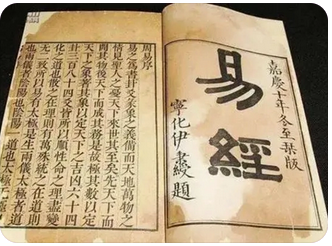 嘉慶十年冬至栞版
易經
寧化伊題
周易序
易之為書卦爻彖象之義備而天地萬物之
情見聖人之憂天下來世其至矣先天下而
開其物後天下而成其務是故極其數以定
天下之象著其象以定天下之吉凶六十四
卦三百八十四爻皆所以順性命之理盡變
化之道也散之在理則有萬殊統之在道則
无二致所以易有太極是生兩儀太極者道
也兩儀者陰陽也陰陽一道也太極无